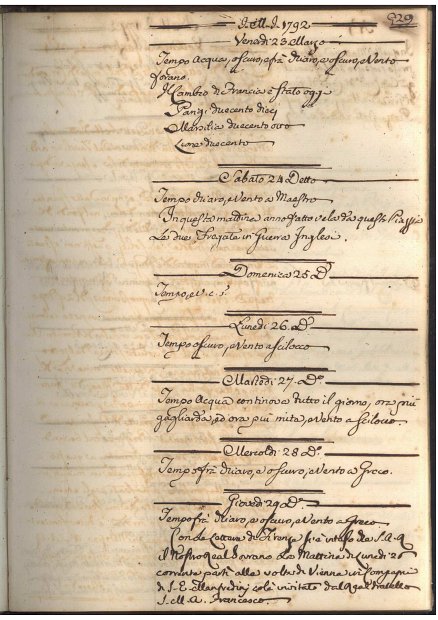 J. M. J. 1792.
929
Venerdì 23 Marzo
Tempo Acqua, oscuro, e frà chiaro, e oscuro, e Vento
Il Cambio di Francia è stato oggi
Parigi duecento dieci
Marsilia duecento otto
Lione duecento
Sabato 24 Detto
Tempo chiaro, e Vento a Maestro
In questa mattina anno fatto vela da questa Piaggia
Le due Fregate in Guerra Inglesi.
Domenica 25 D.º
Tempo, e V. c. s.ª
Lunedì 26. D.º
Tempo oscuro, e Vento a Scilocco
Martedì 27. D.º
Tempo Acqua continova tutto il giorno, ora più
gagliarda, ed ora più mite, e Vento a Scilocco.
Mercoldì 28 D.º
Tempo frà chiaro, e oscuro, e Vento a Greco.
Giovedì 29 D.º
Tempo frà chiaro, e oscuro, e Vento a Greco
Con le Lettere di Firenze si è inteso che S. A. R.
il Nostro Real Sovrano La Mattina di Lunedì 26
corrente partì alla volta di Vienna in Compagnia
di S. E. Manfredini colà invitato dal Real Fratello
S. M. A. Francesco.